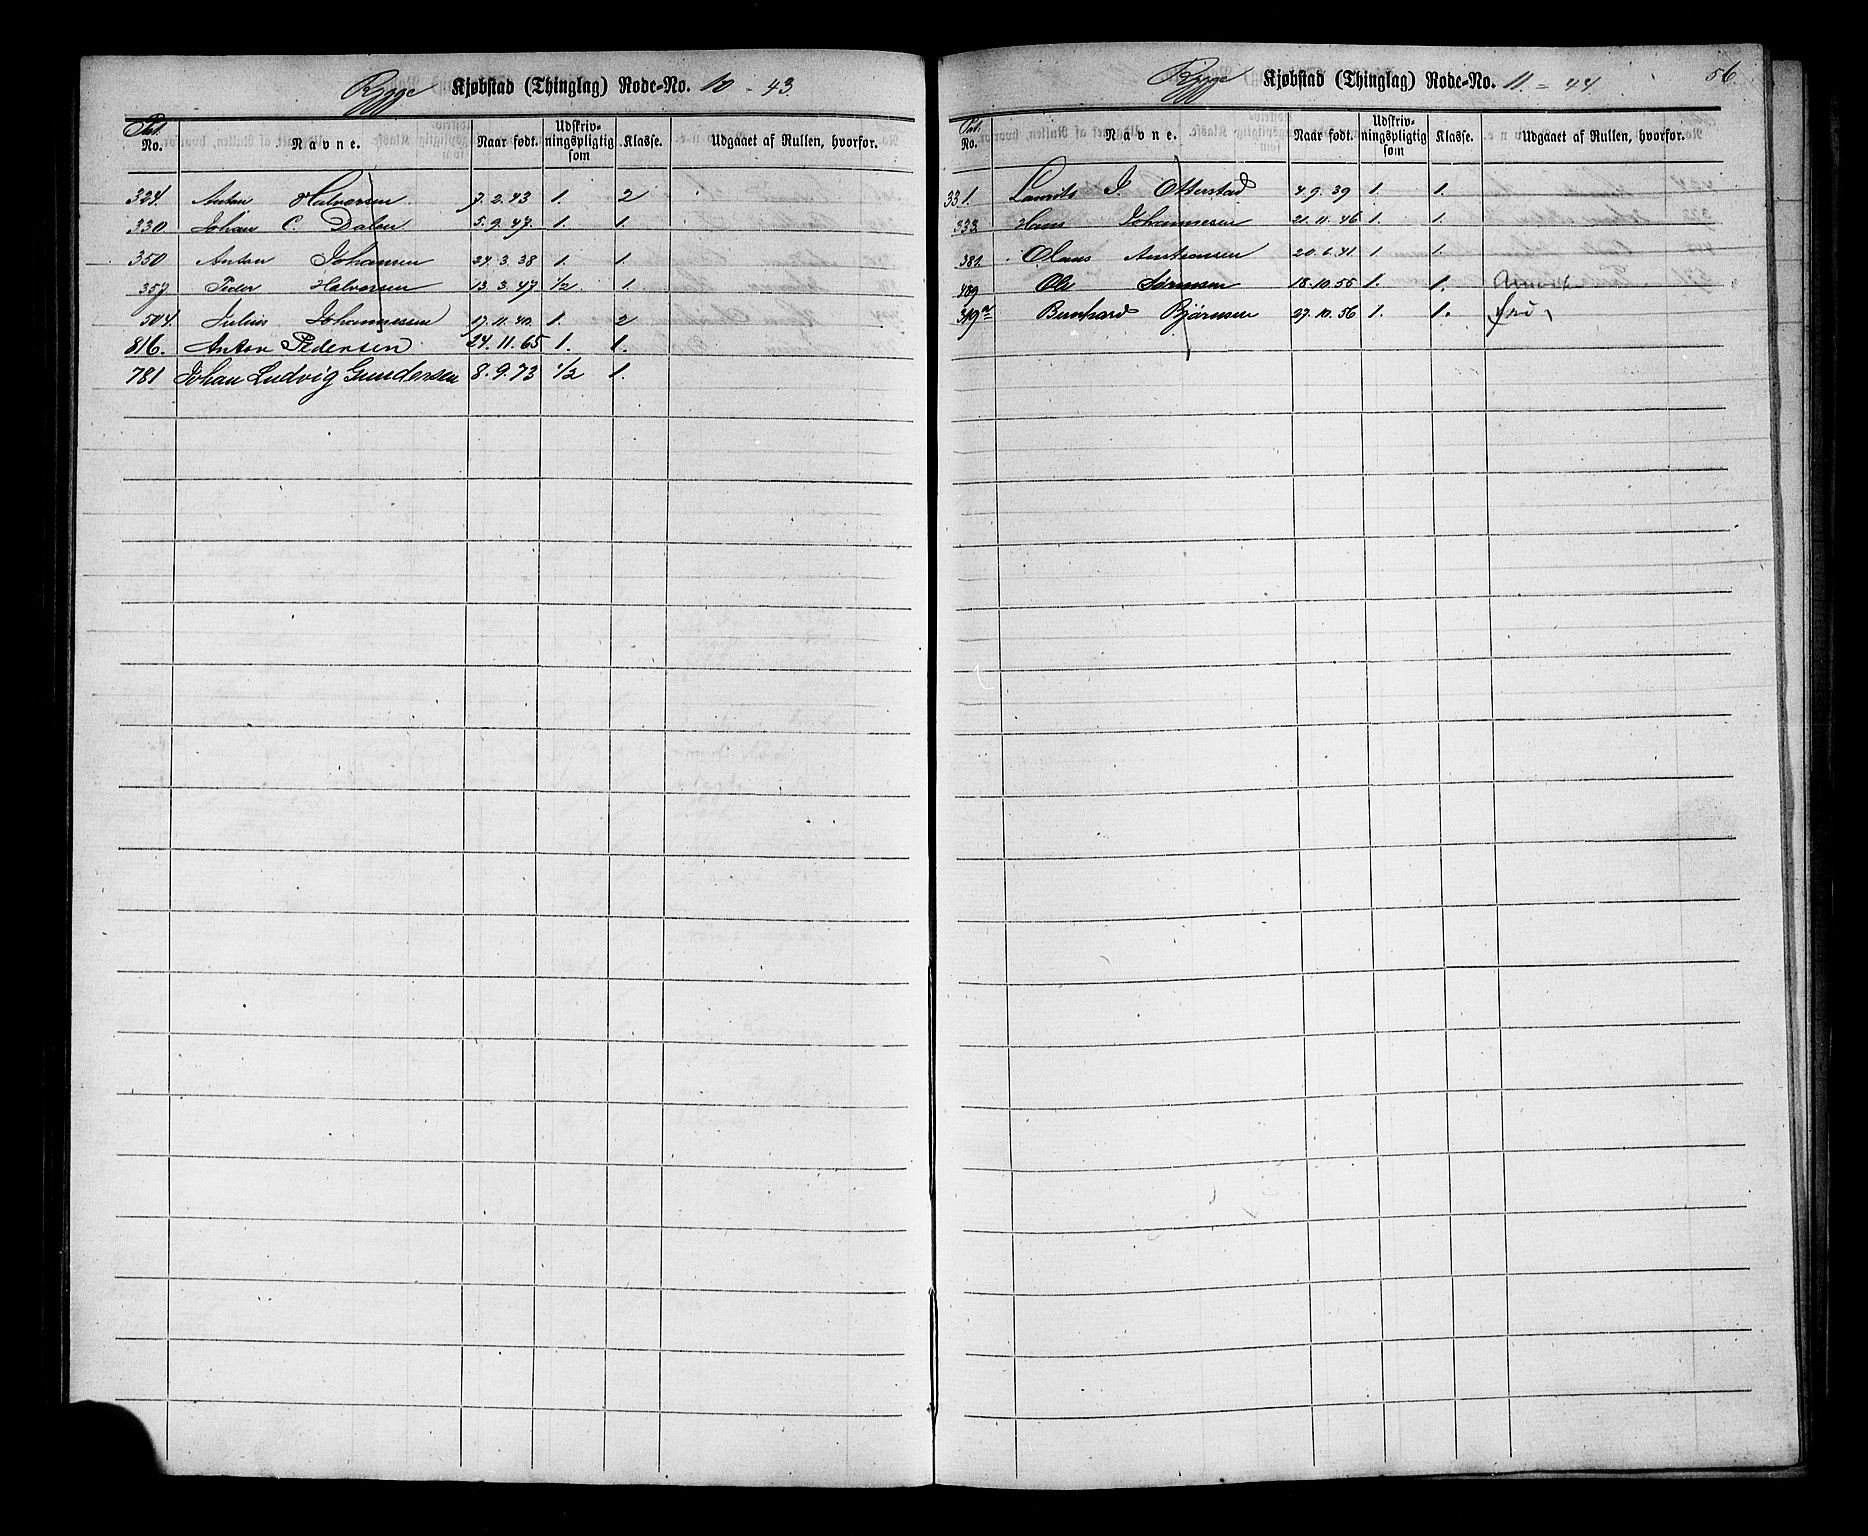 Rygge Kjøbstad (Thinglag) Rode-No. 10 - 43.
Pat. No. Navne. Naar født. Udskriv-ningspligtig som Klasse. Udgaaet af Rullen, hvorfor.
324. Anton Halvorsen 7.2.43 1. 2
330. Johan C. Dalen 5.9.47. 1. 1.
350 Anton Johansen 24.3.38 1. 1.
357 Peder Halvorsen 13.3.47 1/2 1.
504. Julius Johannessen 17.11.40. 1. 2
816. Anton Pedersen 24.11.65 1. 1.
781 Johan Ludvig Gundersen 8.9.73 1/2 1.
Rygge Kjøbstad (Thinglag) Rode-No. 11 - 44 56
Pat. No. Navne. Naar født. Udskriv-ningspligtig som Klasse. Udgaaet af Rullen, hvorfor.
331. Laurits J Otterstad 4.9.39 1. 1.
333. Hans Johannesen 21.11.46 1. 1.
382. Olaus Anstensen 20.6.41 1. 1.
489 Ole Sørensen 18.10.55 1. 1.
319 a Bernhard Bjørnsen 27.10.56 1. 1.